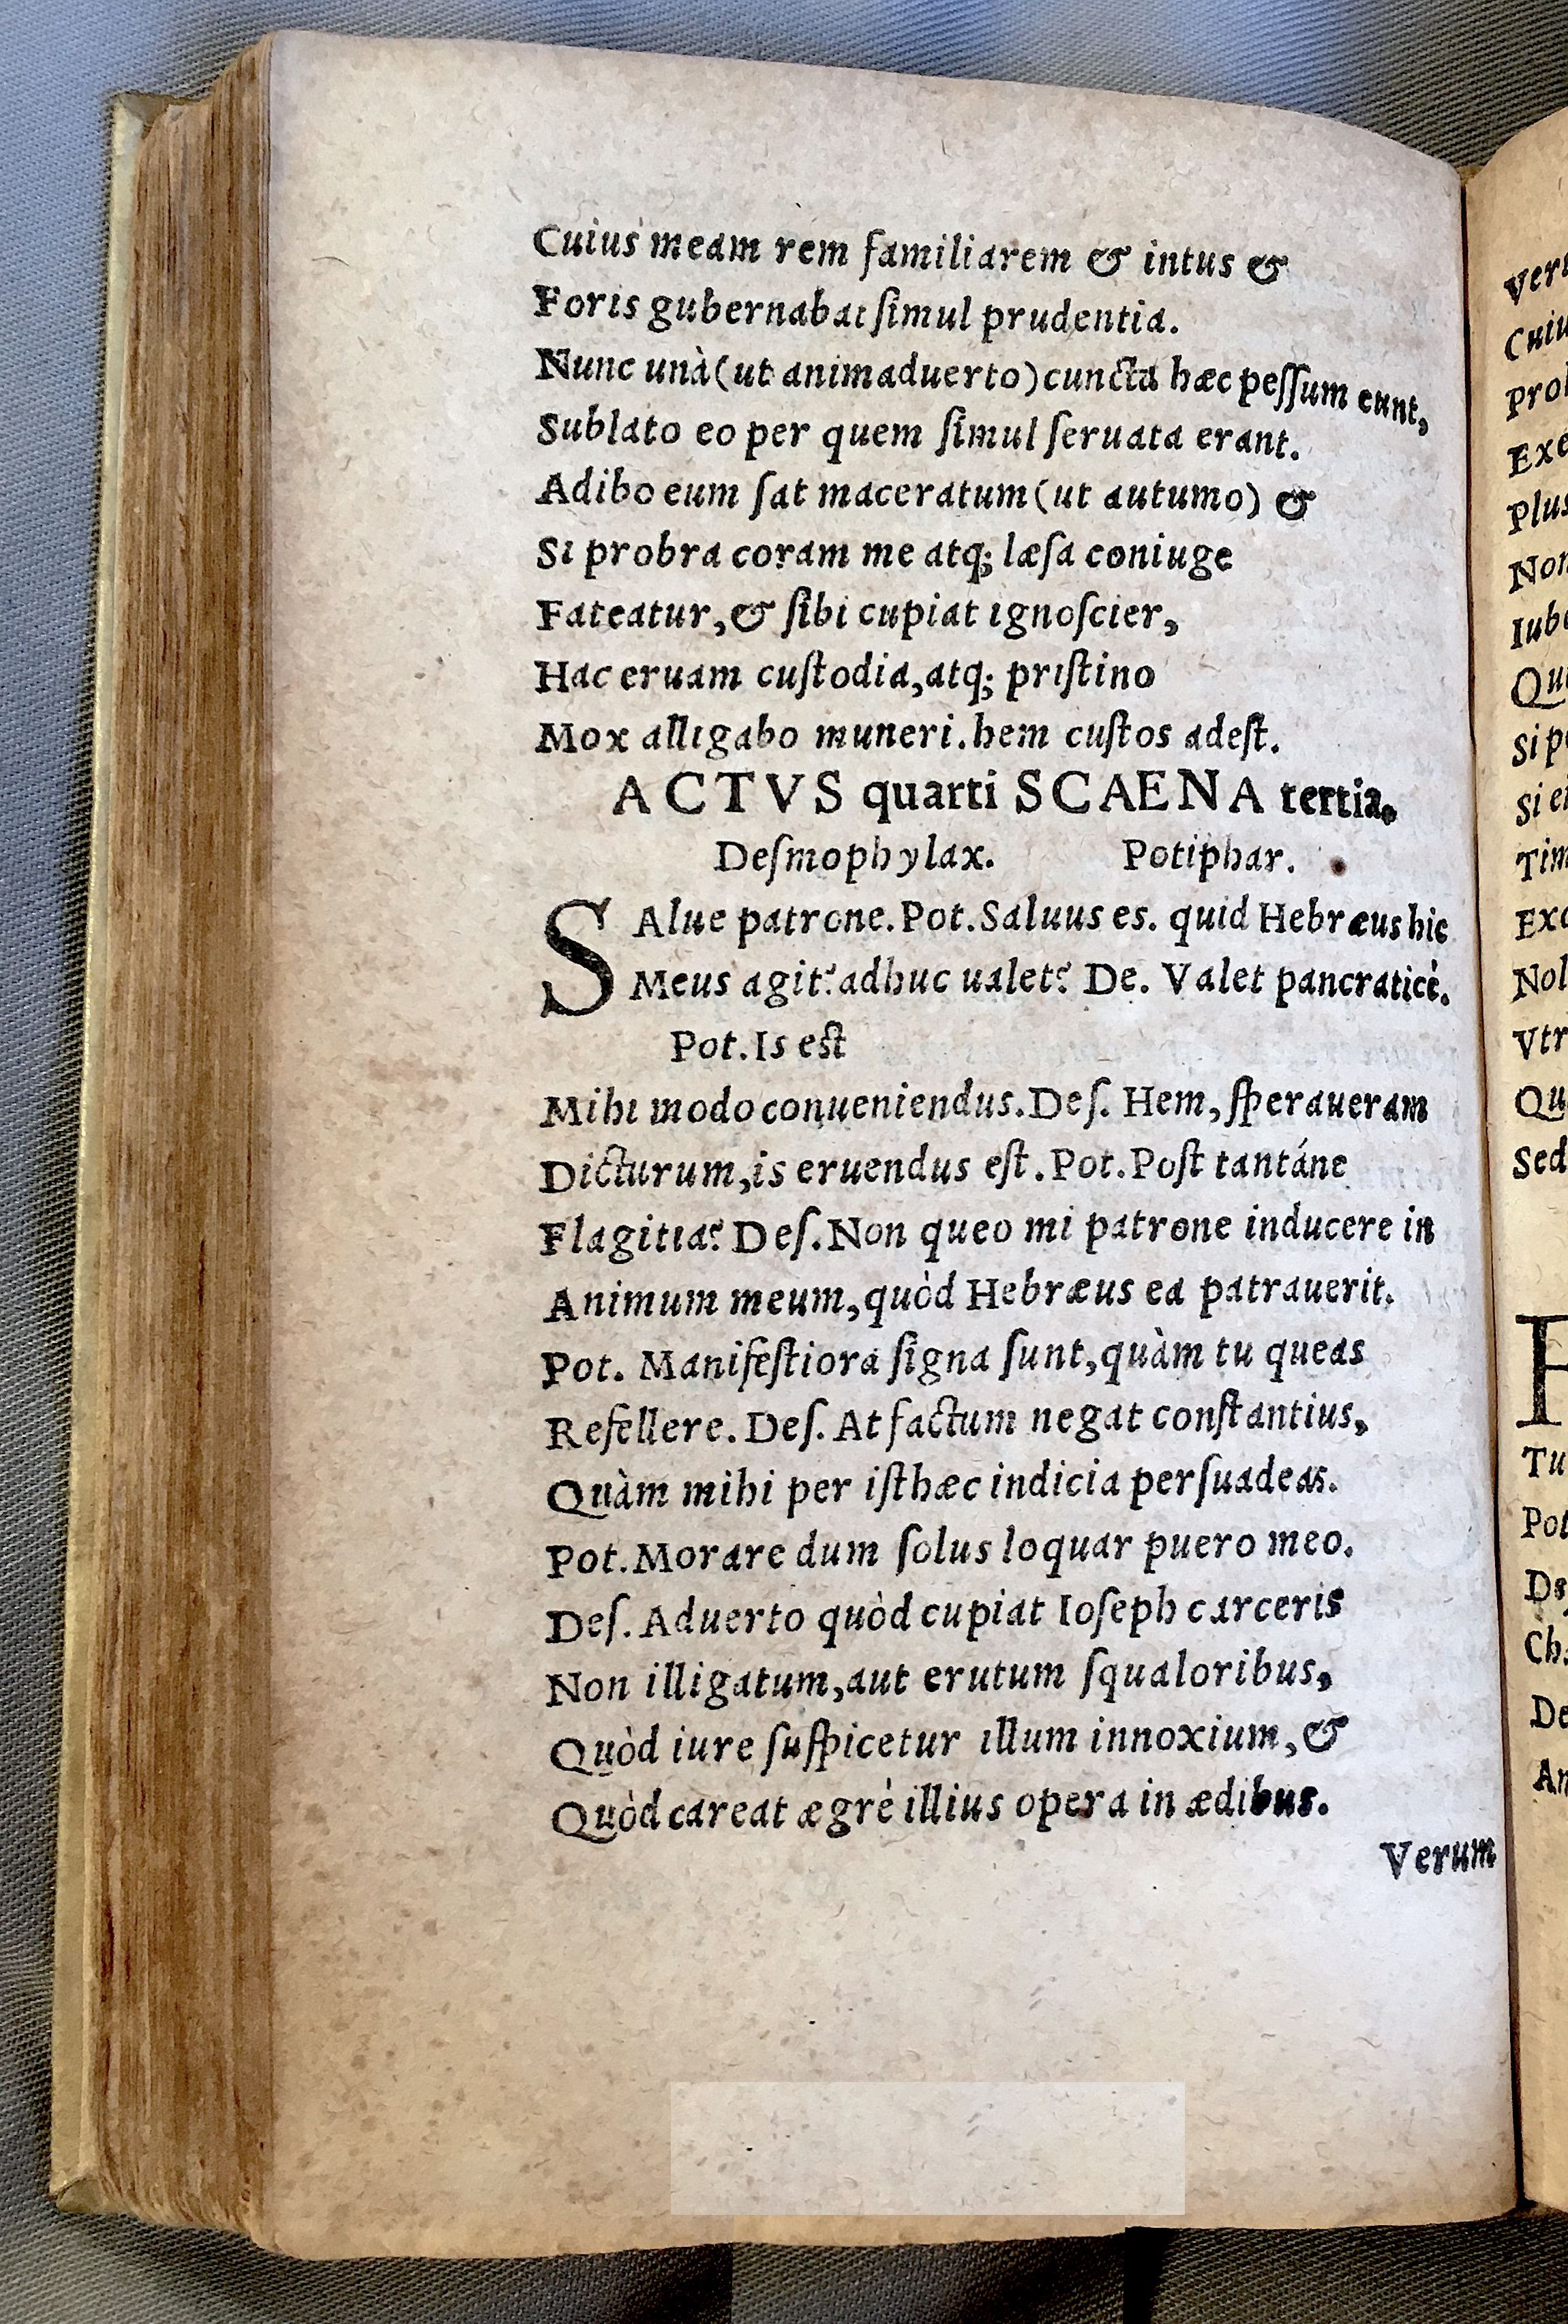 Cuius meam rem familiarem & intus &
Foris gubernabat ſimul prudentia.
Nunc unà (ut animaduerto) cuncta hæc peſſum eunt,
Sublato eo per quem ſimul ſeruata erant.
Adibo eum ſat maceratum (ut autumo) &
Si probra coram me atq; læſa coniuge
Fateatur, & ſibi cupiat ignoſcier,
Hac eruam cuſtodia, atq; priſtino
Mox alligabo muneri. hem cuſtos adeſt.
ACTVS quarti SCAENA tertia.
Deſmophylax. Potiphar.
SAlue patrone. Pot. Saluus es. quid Hebræus hic
Meus agit? adhuc ualet? De. Valet pancraticè.
Pot. Is est
Mihi modo conueniendus. Deſ. Hem, ſperaueram
Dicturum, is eruendus eſt. Pot. Poſt tantáne
Flagitia? Deſ. Non queo mi patrone inducere in
Animum meum, quòd Hebræus ea patrauerit.
Pot. Manifeſtiora ſigna ſunt, quàm tu queas
Refellere. Deſ. At factum negat conſtantius,
Quàm mihi per iſthæc indicia perſuadeas.
Pot. Morare dum ſolus loquar puero meo.
Deſ. Aduerto quòd cupiat Ioſeph carceris
Non illigatum, aut erutum ſqualoribus,
Quòd iure ſuſpicetur illum innoxium, &
Quòd careat ægrè illius opera in ædibus.
Verum
Cuiu
Exe
Plus
Non
Si p
Si e
Tim
Nol
Vtr
Qu
Sed
Tu
Pot
De
An